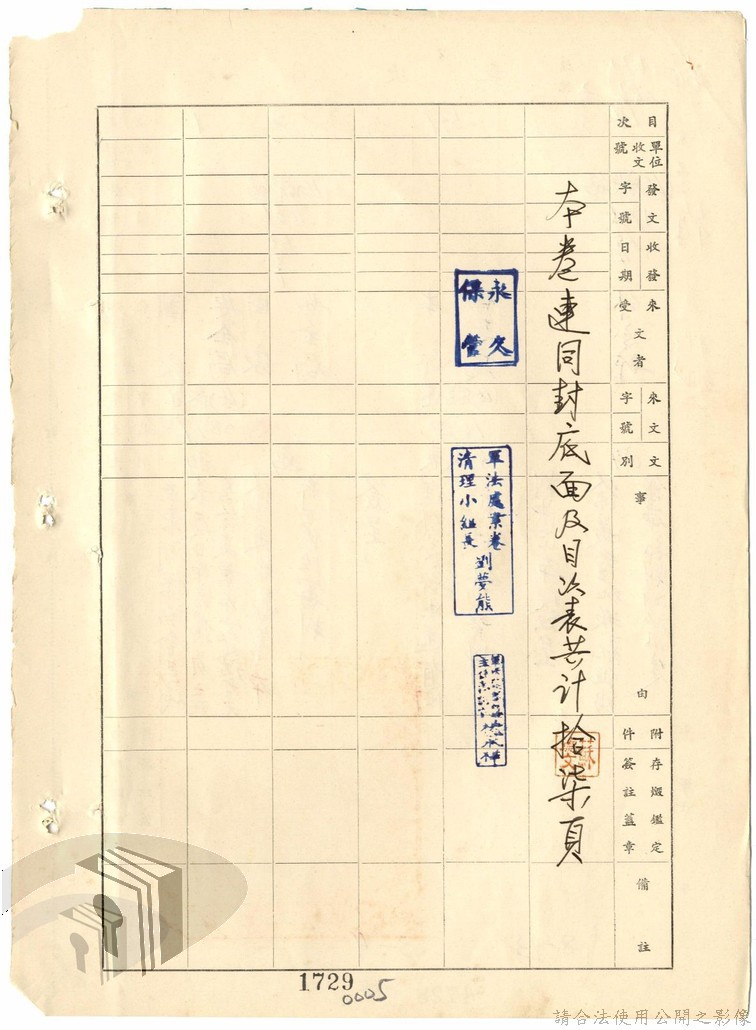 目次
單位收文號
發文字號
收發日期
來文受者
來文字號
文別
事由
附件
存燬鑑定簽註蓋章
備註
本卷連同封底面及目次表共計拾柒頁
永久保管
軍法處業卷清理小組長 劉夢熊
1729
0005
請合法使用公開之影像